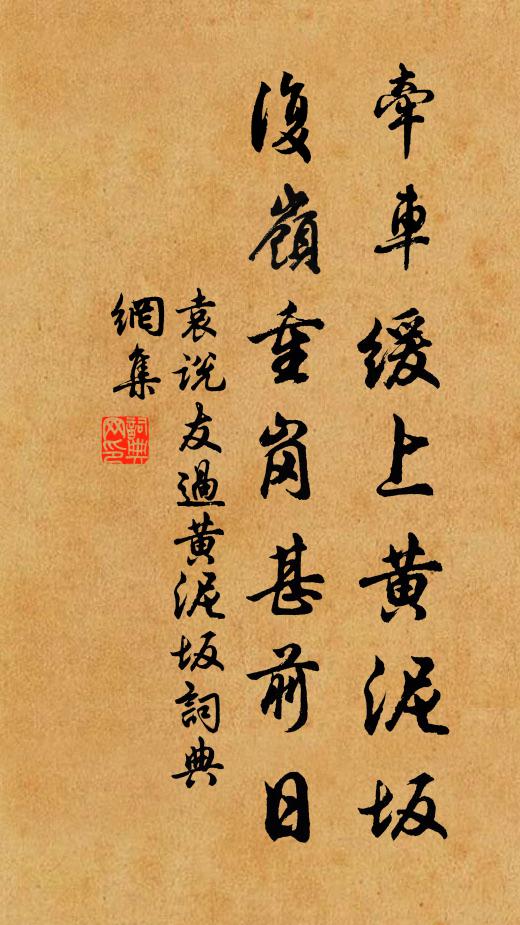 牽車緩上黃泥坂
復嶺重崗甚前日
袁說友過黃泥坂詞典
網集
詞典網印